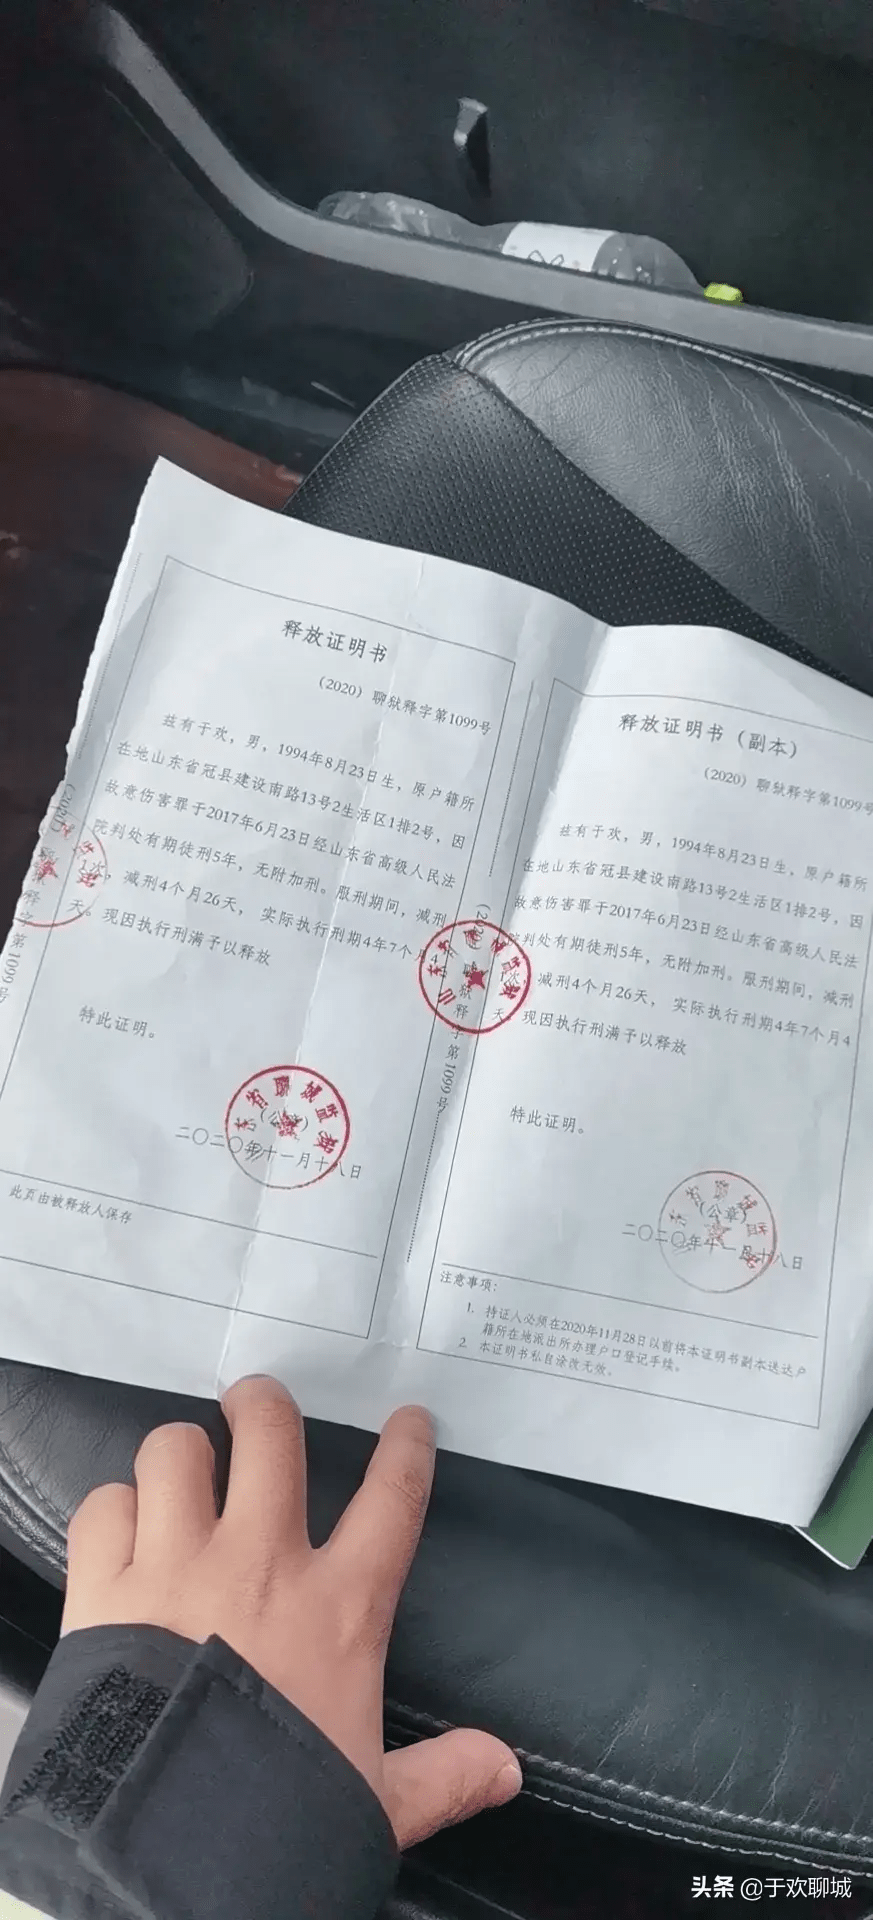 释放证明书
(2020) 聊狱释字第1099号
兹有于欢，男，1994年8月23日生，原户籍所
在地山东省冠县建设南路13号2生活区1排2号，因
故意伤害罪于2017年6月23日经山东省高级人民法
院判处有期徒刑5年，无附加刑。服刑期间，减刑
1次，减刑4个月26天， 实际执行刑期4年7个月4
天。现因执行刑满予以释放
特此证明。
省聊城监狱
(公章)
二〇二〇年十一月十八日
此页由被释放人保存
狱释字第1099号
狱释字第1099号
释放证明书（副本）
(2020) 聊狱释字第1099号
兹有于欢，男，1994年8月23日生，原户籍所
在地山东省冠县建设南路13号2生活区1排2号，因
故意伤害罪于2017年6月23日经山东省高级人民法
院判处有期徒刑5年，无附加刑。服刑期间，减刑
1次，减刑4个月26天， 实际执行刑期4年7个月4
天。现因执行刑满予以释放
特此证明。
(公章)
二〇二〇年十一月十八日
注意事项：
1. 持证人必须在2020年11月28日以前将本证明书副本送达户
籍所在地派出所办理户口登记手续。
2. 本证明书私自涂改无效。
头条 @于欢聊城